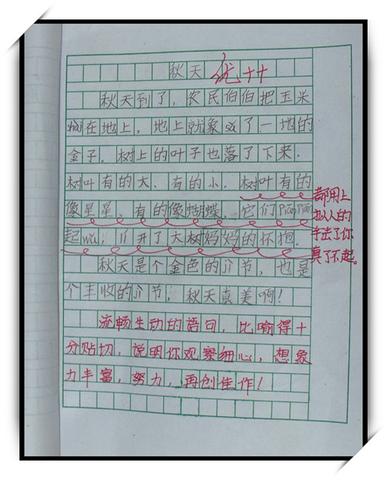 秋天 优++
秋天到了，农民伯伯把玉米
在地上，地上就象成了一地的
金子．树上的叶子也落了下来．
树叶有的大．有的小，树叶有的
像星星，有的像蝴蝶，它们
起wǔ，开了大树妈妈的怀抱．
秋天是个金色的节，也是
个丰收的节，秋天真美啊！
都用上
拟人的
手法了你
真了不起。
流畅生动的语句，比喻得十
分贴切，说明你观察细心，想象
力丰富，努力，再创佳作！